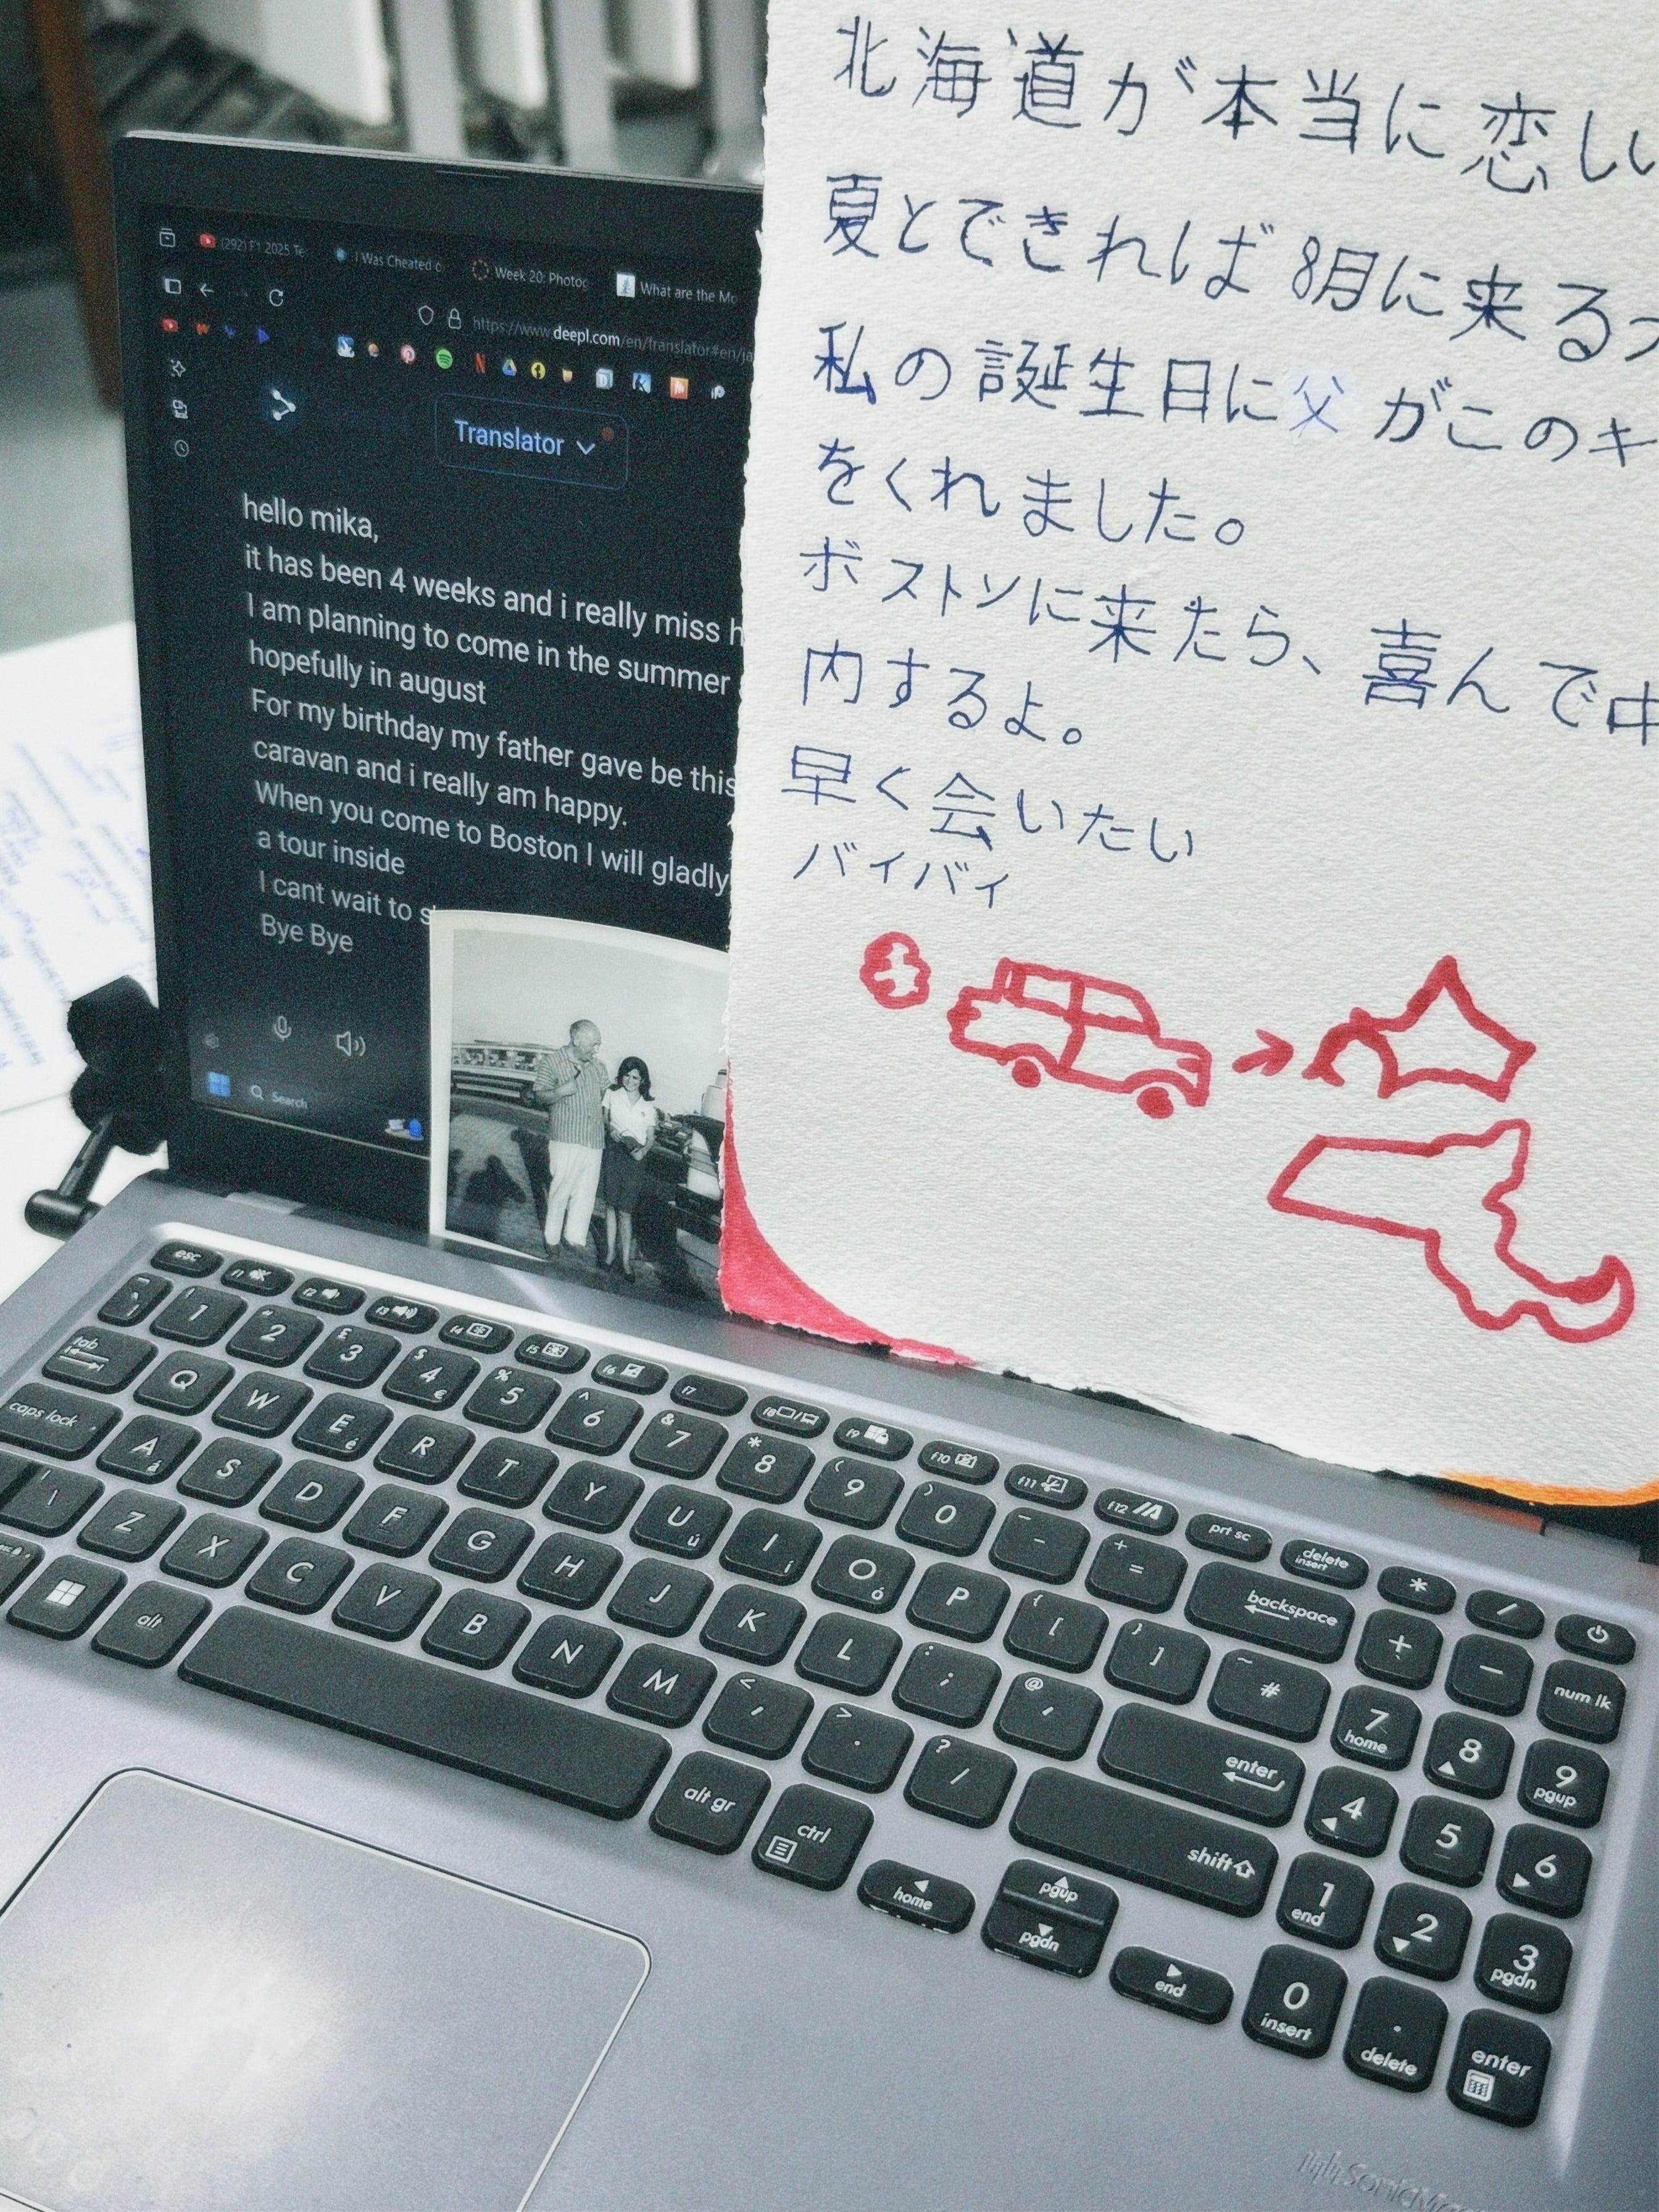 (292) F1 2025 Te
I Was Cheated o
Week 20: Photog
What are the Mo
https://www.deepl.com/en/translator#en/ja
Translator
hello mika,
it has been 4 weeks and i really miss h
I am planning to come in the summer
hopefully in august
For my birthday my father gave be this
caravan and i really am happy.
When you come to Boston I will gladly
a tour inside
I cant wait to s
Bye Bye
Search
北海道が本当に恋しい
夏とできれば8月に来るつ
私の誕生日に父がこのキ
をくれました。
ボストンに来たら、喜んで中
内するよ。
早く会いたい
バイバイ
esc f1 f2 f3 f4 f5 f6 f7 f8 f9 f10 f11 f12 prt sc delete insert * /
! 1 " 2 £ 3 $ 4 € % 5 ^ 6 & 7 * 8 ( 9 ) 0 _ - + = backspace + - num lk
tab Q W E é R T Y U ú I í O ó P { [ } ] ~ # 7 home 8 9 pgup
caps lock A á S D F G H J K L : ; @ ' enter 4 5 6
| \ Z X C V B N M < , > . ? / shift 1 end 2 3 pgdn
alt alt gr ctrl home pgup pgdn end 0 insert . delete enter